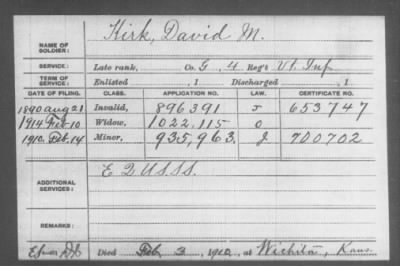 NAME OF SOLDIER: Kirk, David M.
SERVICE: Late rank, Co. G, 4 Reg't Vt. Inf
TERM OF SERVICE: Enlisted , 1 Discharged , 1
DATE OF FILING. CLASS. APPLICATION NO. LAW. CERTIFICATE NO.
1890 Aug 21 Invalid, 896391 J 653747
1914 Feb-10 Widow, 1022,115 O
1910 Feb. 14 Minor, 935,963 J 700702
ADDITIONAL SERVICES: E 2 U.S.S.S.
REMARKS:
Died Feb 3, 1910, at Wichita, Kans.